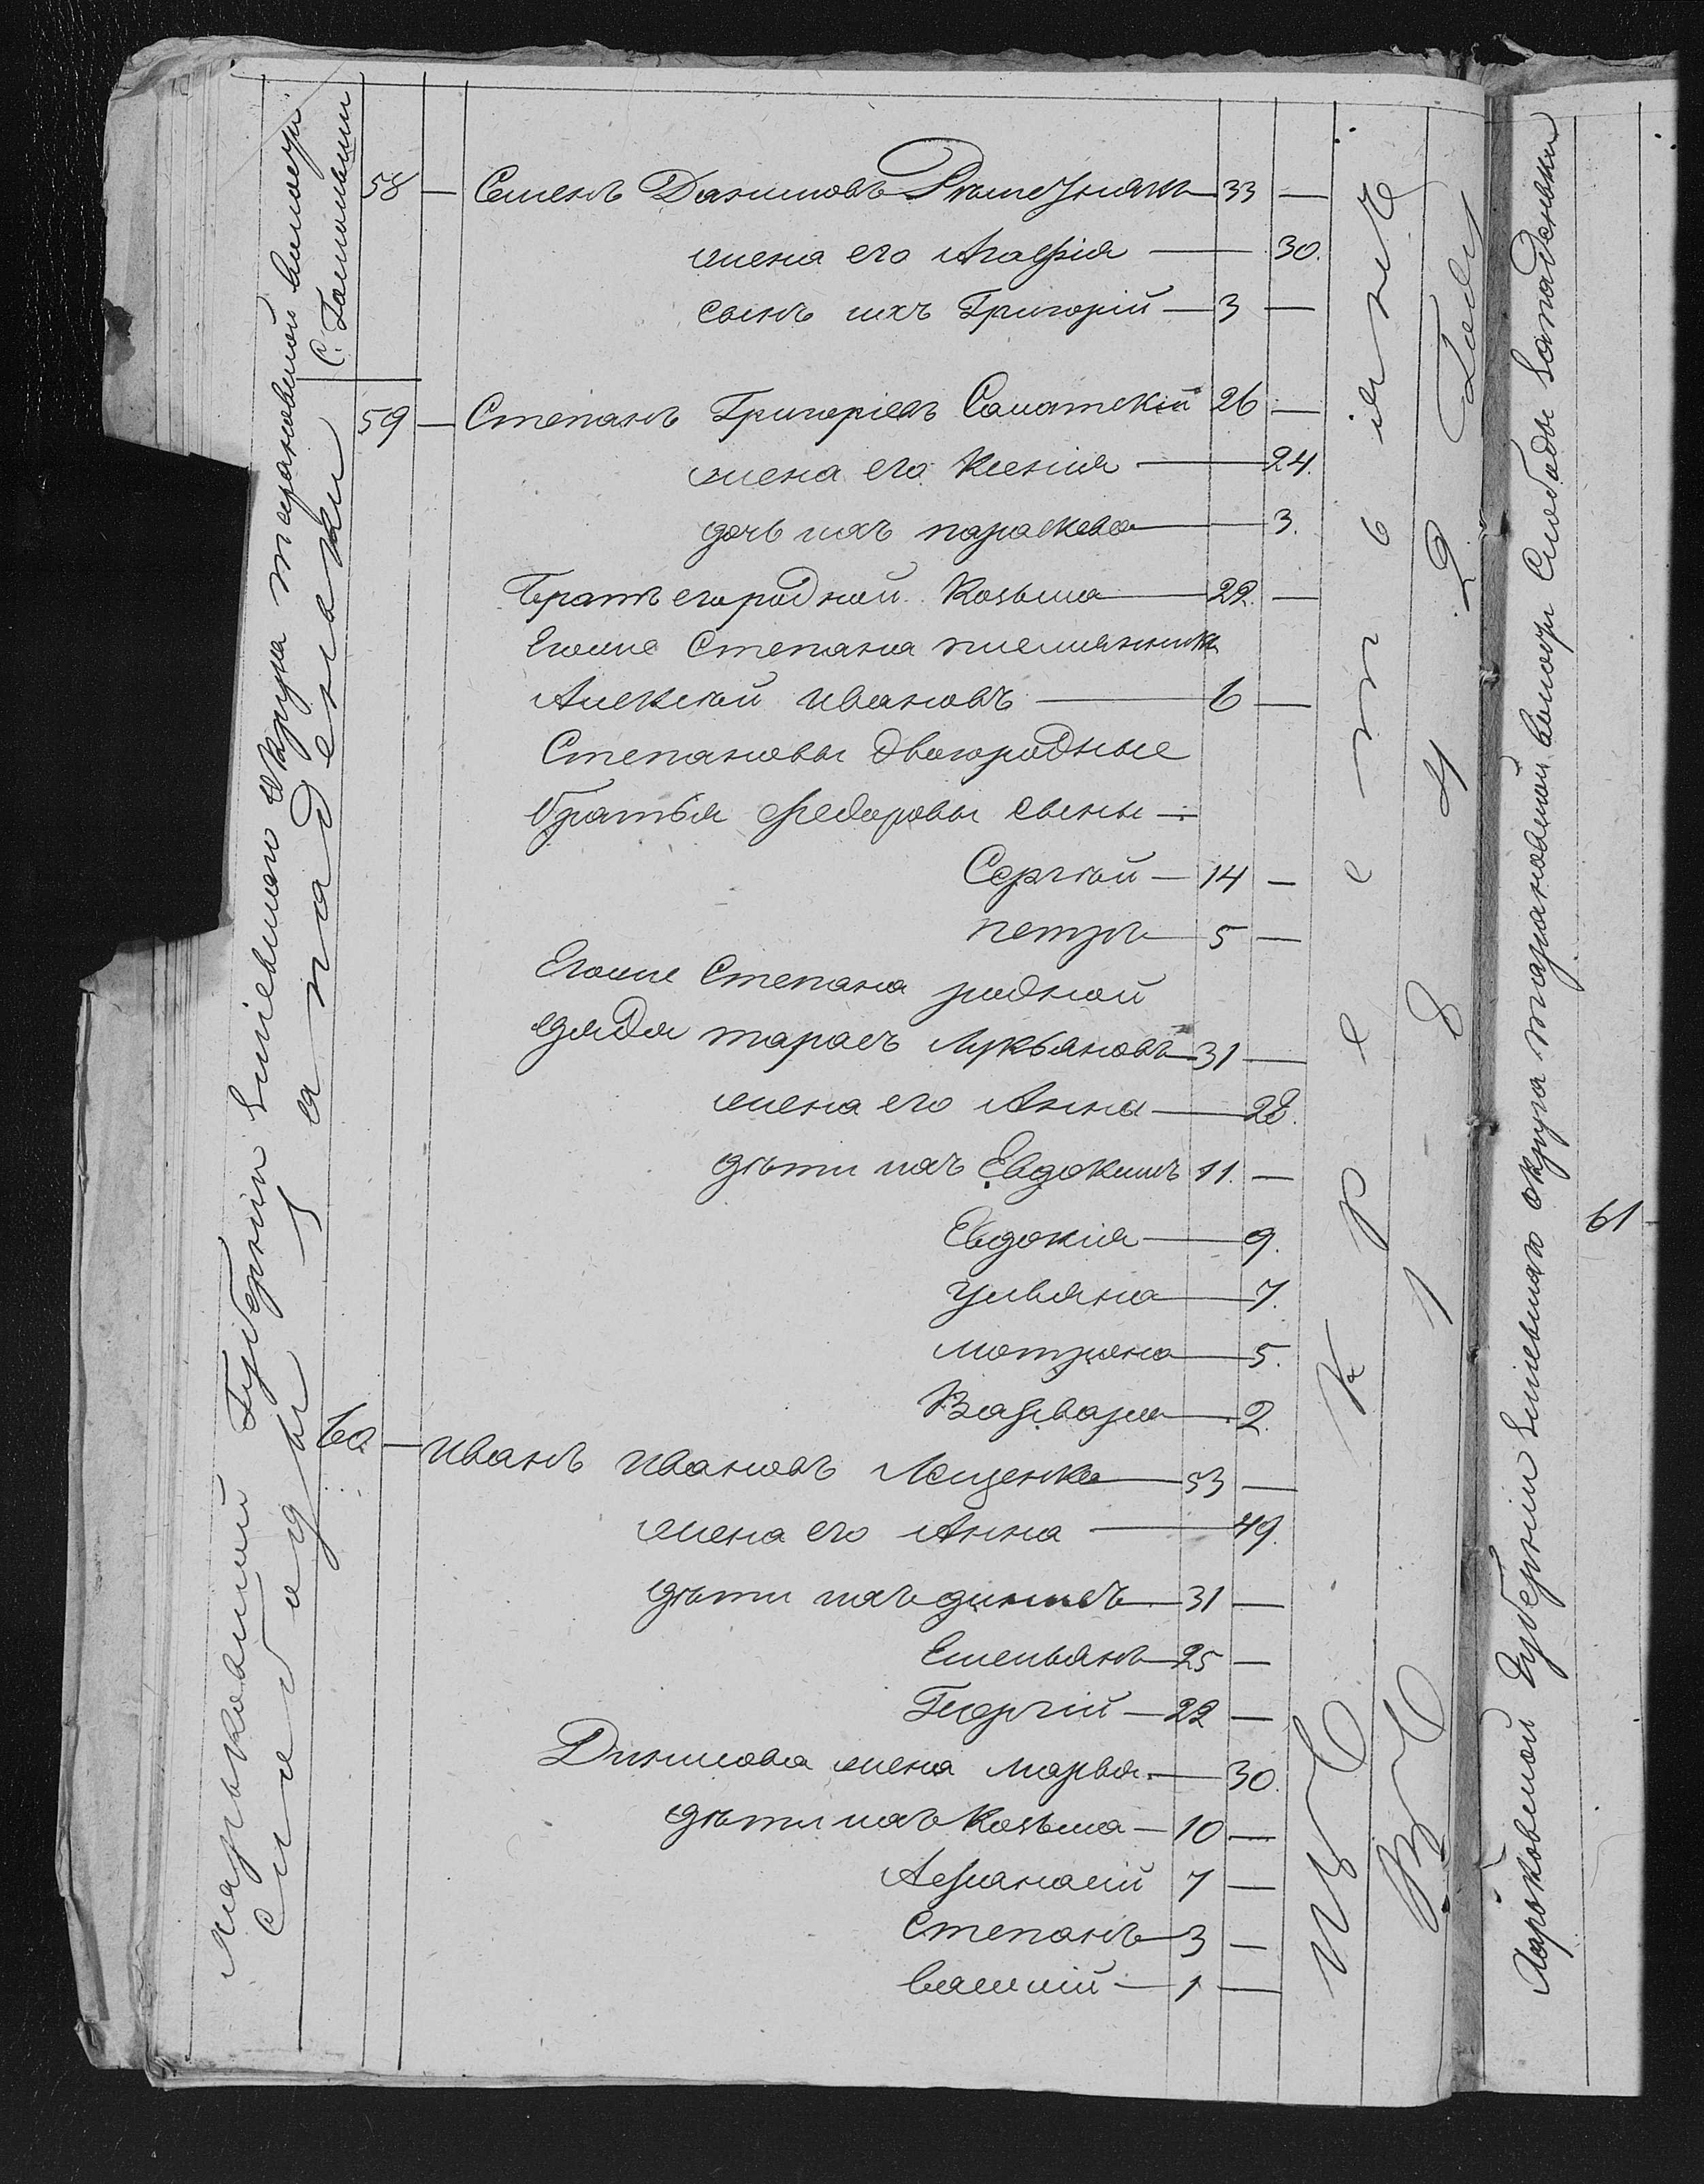 Харьковской Губерніи Зміевскаго округа тарановской волости
Слободы Западеньки
58 — Семенъ Даниловъ Решетнякъ 33 —
жена его Агафія — 30.
сынъ ихъ Григорій — 3 —
59 — Степанъ Григорьевъ 26 —
жена его Ксенія — 24.
дочь ихъ параскева — 3.
Братъ егородной Козьма — 22. —
Егоже Степана племянникъ
Алексѣй ивановъ — 6 —
Степановы двоюродные
братья Федоровы сыны —
Сергѣй — 14 —
петръ — 5 —
Егоже Степана родной
дядя тарасъ Лукьяновъ — 31 —
жена его Анна — 28.
дѣти ихъ Евдокимъ 11. —
Евдокія — 9.
ульяна — 7.
мотрена — 5.
Варвара — 2.
60. — иванъ ивановъ Лещенко — 53 —
жена его Анна — 49.
дѣти ихъ — 31 —
Емельянъ — 25 —
Георгій — 22 —
жена марья. — 30.
дѣти ихъ Козьма — 10 —
Афанасій 7 —
Степанъ — 3 —
Василій — 1 —
крестьяне
1842 Года
Харьковской Губерніи Зміевскаго округа тарановской волости Слободы Западеньки
61 —